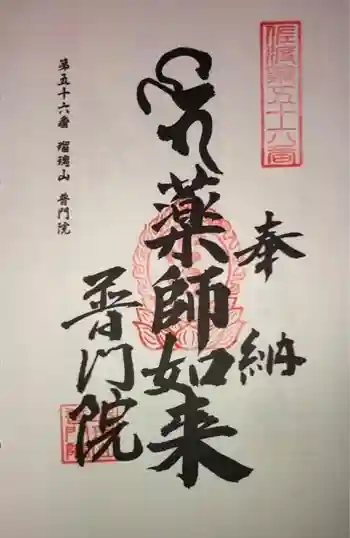 佐渡第五十六番
奉納
薬師如来
普門院
普門院
第五十六番 瑠璃山 普門院